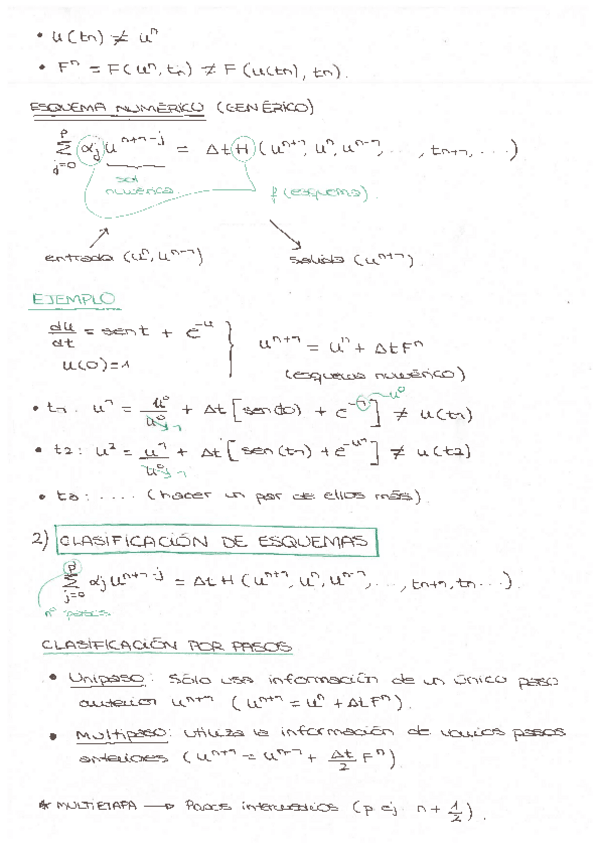 • u(tn) ≠ uⁿ
• Fⁿ = F(uⁿ, tn) ≠ F(u(tn), tn).
ESQUEMA NUMÉRICO (GENÉRICO)
p
Σ αj uⁿ⁺¹⁻ʲ = Δt H (uⁿ⁺¹, uⁿ, uⁿ⁻¹, ..., tn+1, ...)
j=0
sol numérica
f(esquema).
entrada (uⁿ, uⁿ⁻¹)
salida (uⁿ⁺¹)
EJEMPLO
du/dt = sent + e⁻ᵘ
u(0)=1
uⁿ⁺¹ = uⁿ + ΔtFⁿ
(esquema numérico)
• t1. u¹ = u⁰ + Δt [sen(to) + e⁻¹] ≠ u(t1)
u⁰
• t2: u² = u¹ + Δt [sen(t1) + e⁻ᵘ¹] ≠ u(t2)
• t3: .... (hacer un par de ellos más).
2) CLASIFICACIÓN DE ESQUEMAS
p
Σ αj uⁿ⁺¹⁻ʲ = Δt H (uⁿ⁺¹, uⁿ, uⁿ⁻¹, ..., tn+1, tn ...).
j=0
nº pasos
CLASIFICACIÓN POR PASOS
• Unipaso: Sólo usa información de un único paso
anterior uⁿ⁺¹ (uⁿ⁺¹ = uⁿ + ΔtFⁿ).
• Multipaso: utiliza la información de varios pasos
anteriores (uⁿ⁺¹ = uⁿ⁻¹ + Δt/2 Fⁿ).
* MULTIETAPA → Pasos intermedios (p ej. n + 1/2).